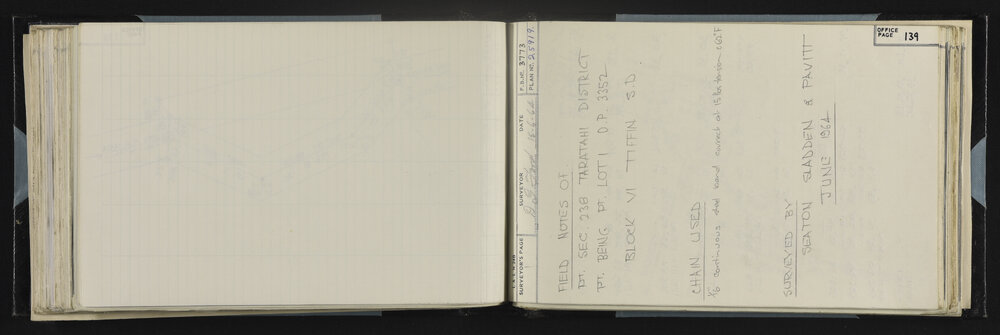 OFFICE PAGE 139
F.B. Nº. 3773
PLAN NO. 25919
DATE 16.6.64
SURVEYOR
SURVEYOR'S PAGE
FIELD NOTES OF
PT. SEC 238 TARATAHI DISTRICT
PT. BEING PT. LOT 1 D.P. 3352
BLOCK VI TIFFIN S.D.
CHAIN USED
continuous steel band correct at 15 lbs tension 60°F
SURVEYED BY
SEATON SLADDEN & PAVITT
JUNE 1964